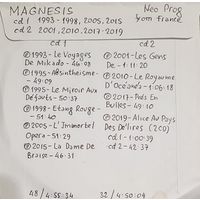 MAGNESIS
Neo Prog
cd 1 1993-1998, 2005, 2015
from France
cd 2 2001, 2010, 2017-2019
cd 1
℗1993-Le Voyages
De Mikado - 46:08
℗1995-Absintheisme -
- 49:09
℗1995-Le Miroir Aux
Défauts - 50:37
℗1998-Etang Rouge -
- 51:40
℗2005-L'Immortel
Opera - 51:29
℗2015-La Dame De
Braise - 46:31
cd 2
℗2001-Les Gens
De - 1:11:20
℗2010-Le Royaume
D'Océania - 1:09:43
℗2017-Prés En
Bulles - 49:10
℗2019-Alice Au Pays
Des Délires (2CD)
cd 1 - 1:00:39
cd 2 - 42:37
48/4:55:34
32/4:50:04